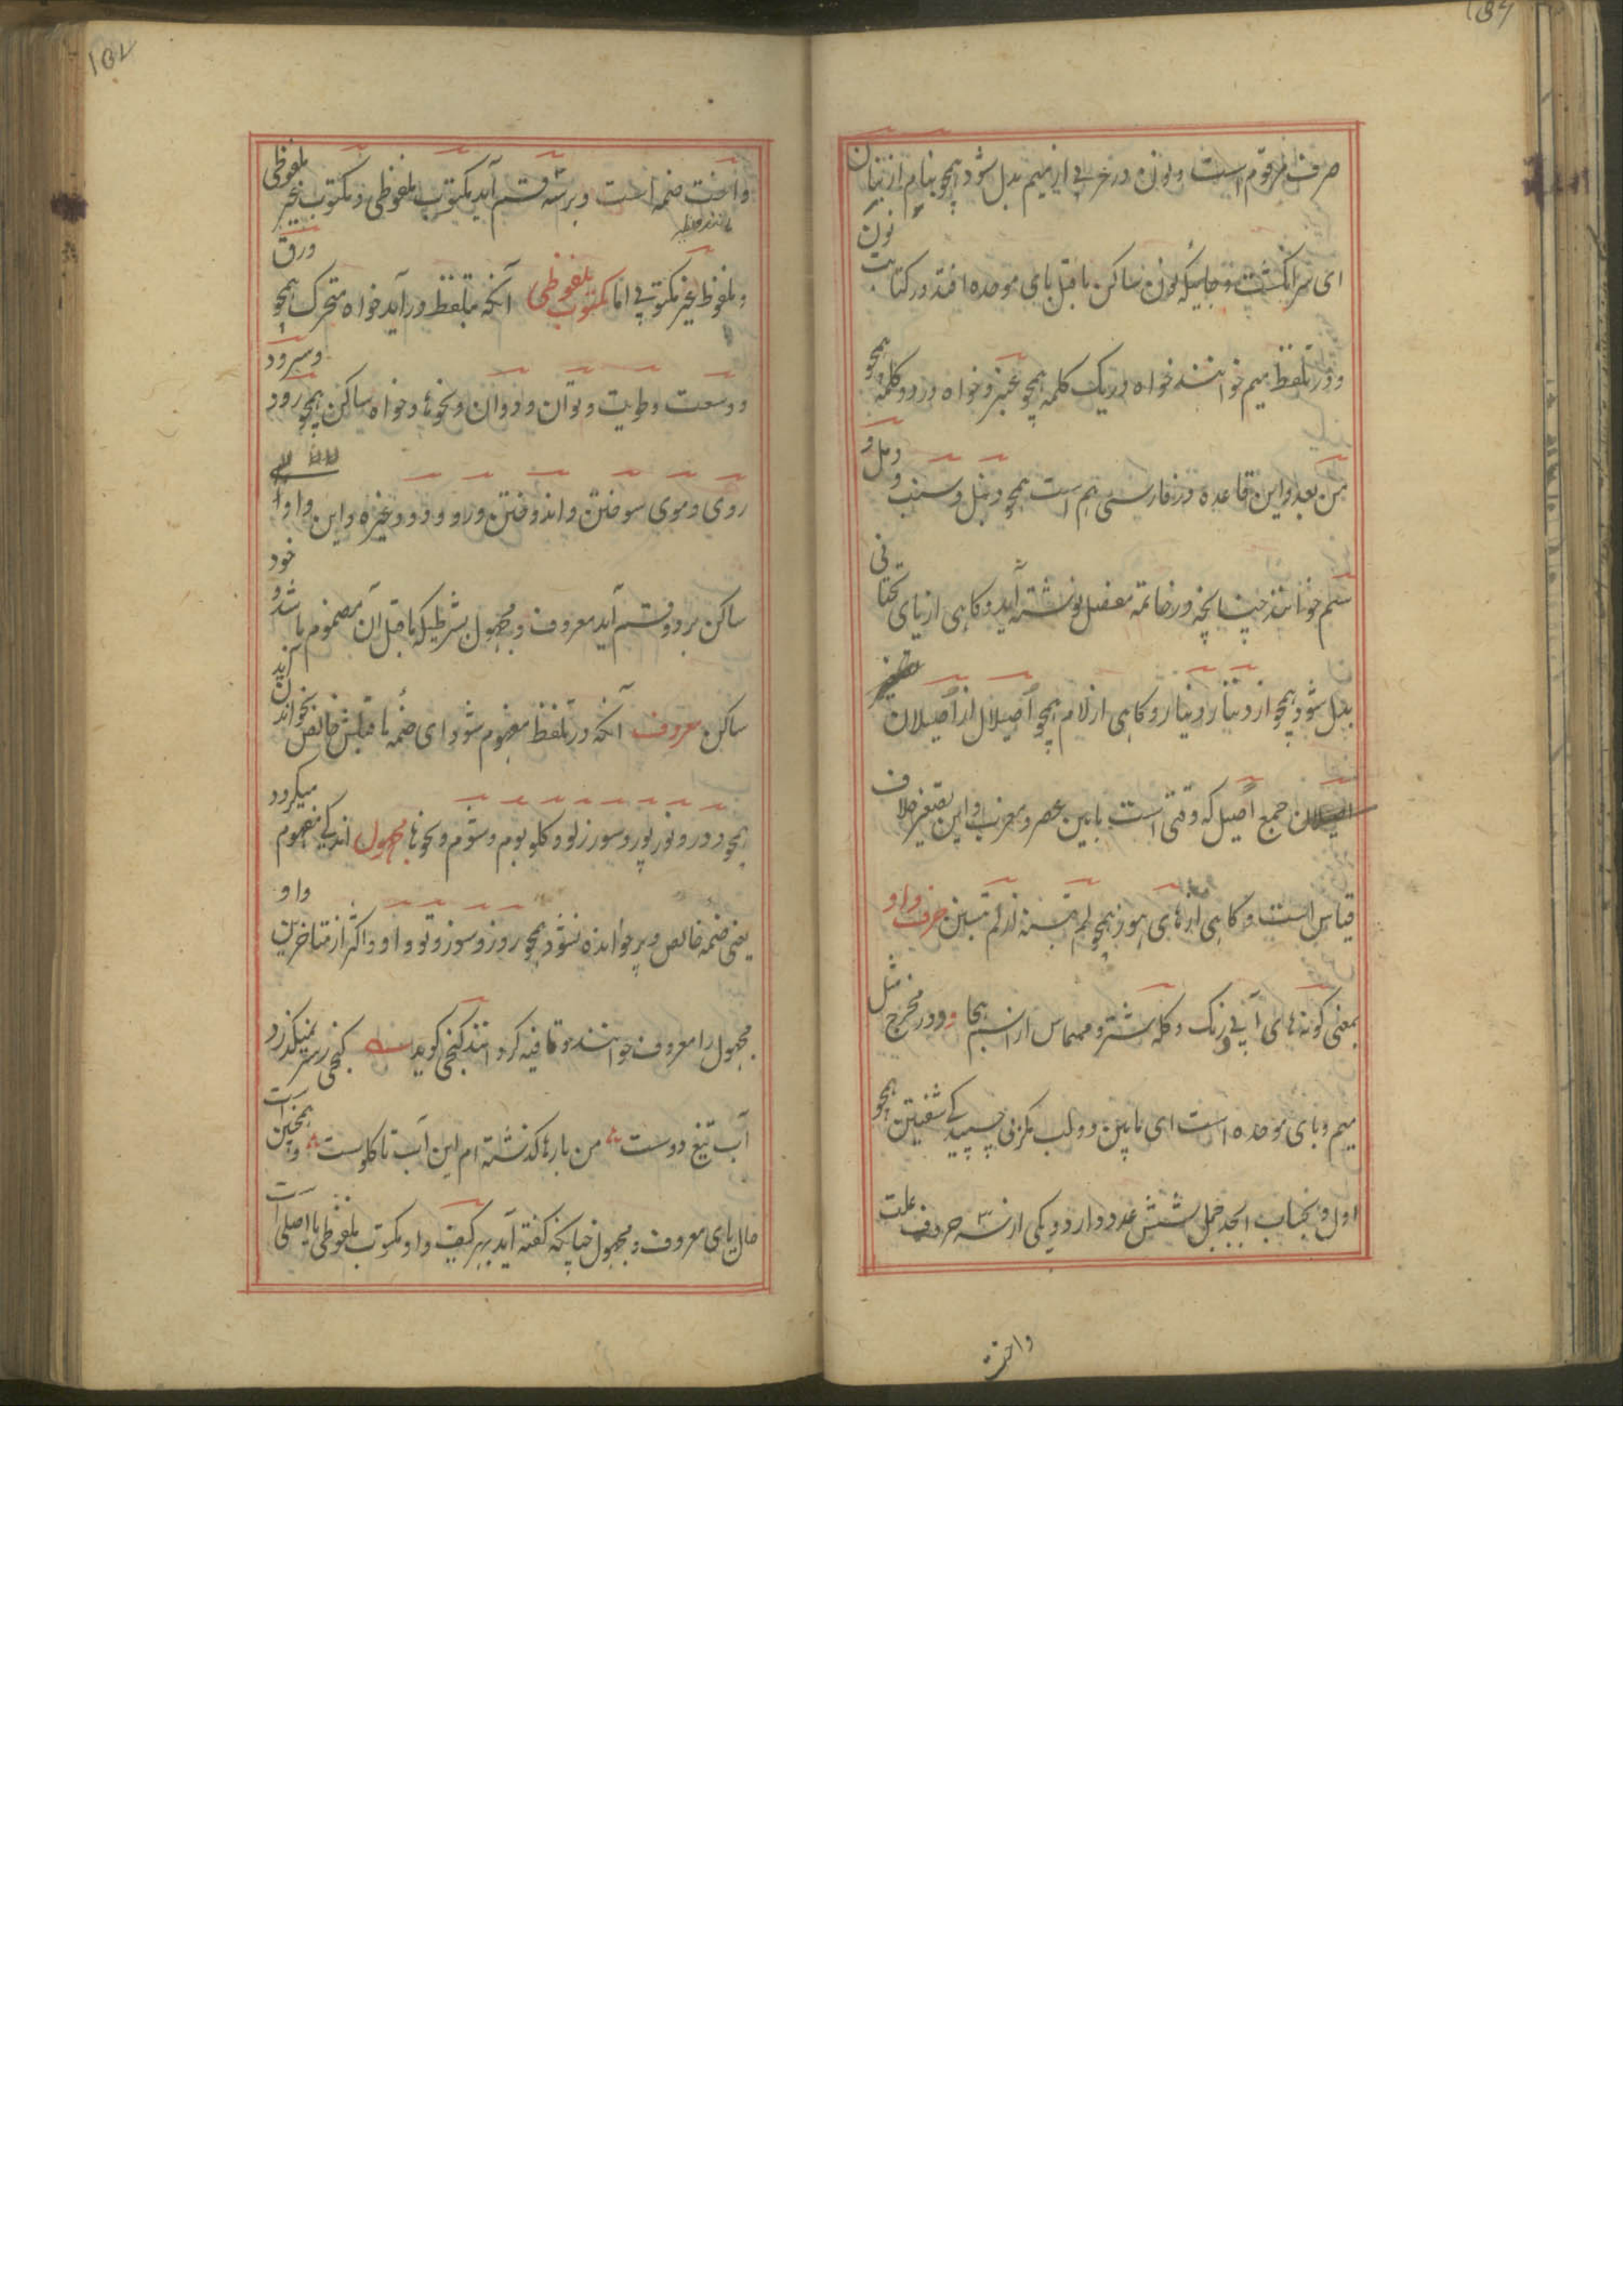 صرف مرقوم است و نون در عربی از میم بدل شود همچو بنام از بنان
ای سر انگشت و جائیکه نون ساکن ماقبل بای موحده افتد در کتابت نون
و در تلفظ میم خوانند خواه در یک کلمه همچو عنبر و خواه در دو کلمه همچو
من بعد و این قاعده در فارسی هم است همچو دنبل و سنب و دمل و
سم خوانند چنانچه در خاتمه مفصل نوشته آید و کاهی از یای تحتانی
بدل شود همچو از دنار دینار و کاهی از لام همچو اصیلال از اصیلان
جمع اصیل که وقتی است مابین عصر و مغرب و این تصغیر خلاف
قیاس است و کاهی از های هوز همچو لم تسنه از لم تسنن حرف واو
بمعنی کونه های آبی رنک و کله شتر و در مخرج مثل
میم و بای موحده است ای مابین دو لب مکر نی چسپیدکی شفتین همچو
اول و بحساب ابجد جمل شش عدد دارد و یکی از سه حروف علت
واخت
واخت ضمه است و بر سه قسم آید مکتوب ملفوظی و مکتوب غیر ملفوظی
و ملفوظ غیر مکتوبی اما مکتوب ملفوظی آنکه بتلفظ درآید خواه متحرک همچو ورق
و وسعت و طویت و توان و دوان و نحوها و خواه ساکن همچو رود و سرود
روی و موی سوختن و اندوختن و رو و دو و غیره و این واو
ساکن بر دو قسم آید معروف و مجهول بشرطیکه ماقبل آن مضموم باشد و خود
ساکن معروف آنکه در تلفظ مفهوم شود ای ضمه ماقبلش خالص بخوانند
همچو دور و نور پور و سور زلو و کلو بوم و شوم و نحوها مجهول اندکی مفهوم میکردد
یعنی ضمه خالص و پر خوانده نشود همچو روز و سوز و تو و او و اکثر از متاخرین واو
مجهول را معروف خوانند و قافیه کرده اند کنجی کوید کنجی ز سر نمیکذرد
آب تیغ دوست من بارها کذشته ام این آب تا کلوست و همچنین است
حال یای معروف و مجهول چنانکه کفته آید بهر کیف واو مکتوب ملفوظی یا اصلی است